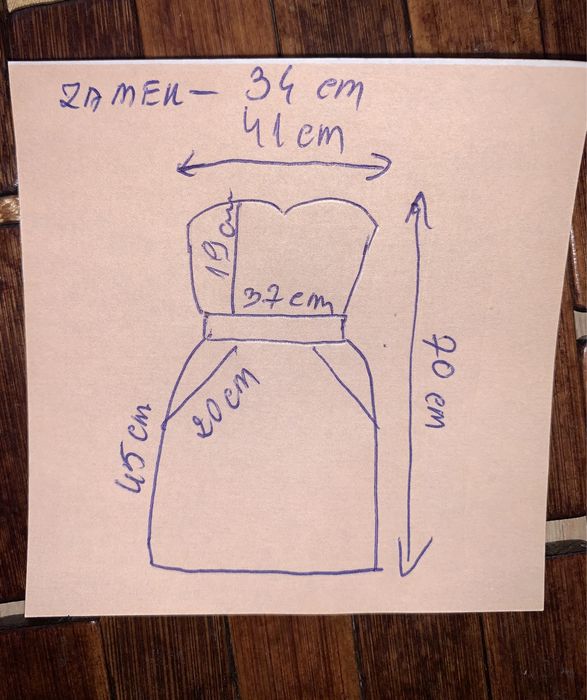 ZAMEK - 34 cm
41 cm
19 cm
37 cm
20 cm
45 cm
70 cm